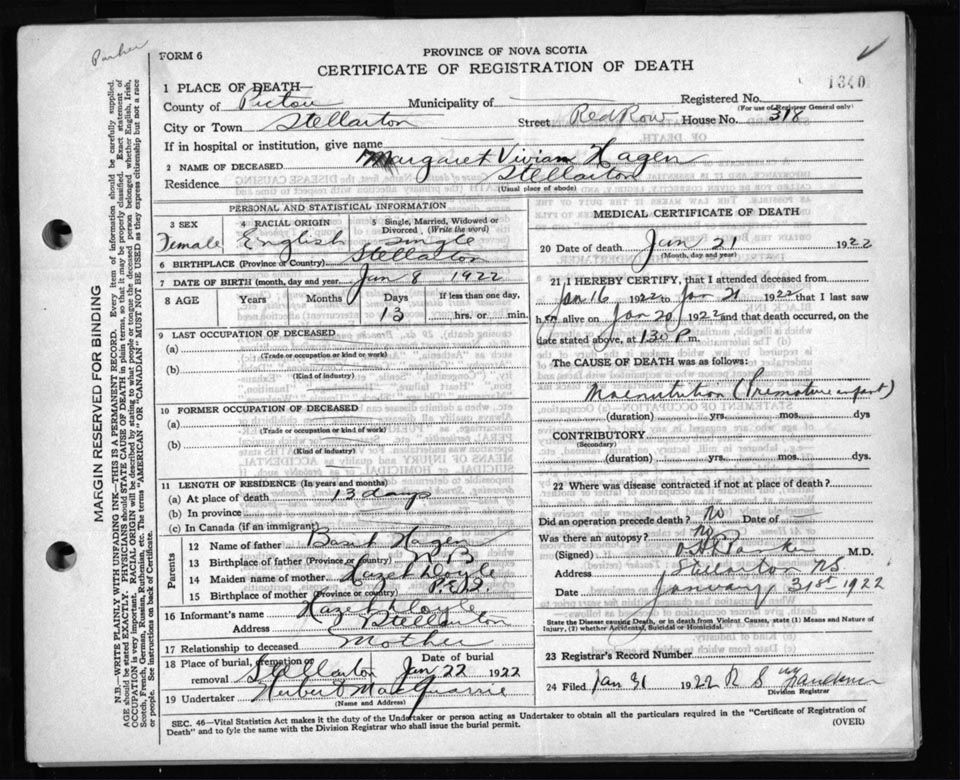 Parker
FORM 6
PROVINCE OF NOVA SCOTIA
CERTIFICATE OF REGISTRATION OF DEATH
1340
1 PLACE OF DEATH—
County of Pictou Municipality of Registered No.
(For use of Registrar General only)
City or Town Stellarton Street Red Row House No. 318
If in hospital or institution, give name
2 NAME OF DECEASED Margaret Vivian Hagen
Residence Stellarton
(Usual place of abode)
PERSONAL AND STATISTICAL INFORMATION
3 SEX Female
4 RACIAL ORIGIN English
5 Single, Married, Widowed or Divorced (Write the word) Single
6 BIRTHPLACE (Province or Country) Stellarton
7 DATE OF BIRTH (month, day and year) Jan 8 1922
8 AGE Years Months Days If less than one day,
13 hrs. or min.
9 LAST OCCUPATION OF DECEASED
(a)
(Trade or occupation or kind of work)
(b)
(Kind of industry)
10 FORMER OCCUPATION OF DECEASED
(a)
(Trade or occupation or kind of work)
(b)
(Kind of industry)
11 LENGTH OF RESIDENCE (In years and months)
(a) At place of death 13 days
(b) In province
(c) In Canada (if an immigrant)
Parents
12 Name of father Basil Hagen
13 Birthplace of father (Province or country) N B
14 Maiden name of mother Hazel Doyle
15 Birthplace of mother (Province or country)
16 Informant's name Hazel Doyle
Address Stellarton
17 Relationship to deceased Mother
18 Place of burial, cremation or removal Stellarton Date of burial Jan 22 1922
19 Undertaker Hubert MacQuarrie
(Name and Address)
MEDICAL CERTIFICATE OF DEATH
20 Date of death Jan 21 1922
(Month, day and year)
21 I HEREBY CERTIFY, that I attended deceased from
Jan 16 1922 to Jan 21 1922 that I last saw
her alive on Jan 20 1922 and that death occurred, on the
date stated above, at 1 30 P m.
The CAUSE OF DEATH was as follows:
Malnutrition (Premature infant)
(duration) yrs. mos. dys
CONTRIBUTORY
(Secondary)
(duration) yrs. mos. dys.
22 Where was disease contracted if not at place of death?
Did an operation precede death? No Date of
Was there an autopsy? No
(Signed) Parker M.D.
Address Stellarton NS
Date January 31st 1922
State the Disease causing Death, or in death from Violent Causes, state (1) Means and Nature of
Injury, (2) whether Accidental, Suicidal or Homicidal.
23 Registrar's Record Number
24 Filed Jan 31 1922 R S
Division Registrar
SEC. 46—Vital Statistics Act makes it the duty of the Undertaker or person acting as Undertaker to obtain all the particulars required in the "Certificate of Registration of
Death" and to fyle the same with the Division Registrar who shall issue the burial permit.
(OVER)
MARGIN RESERVED FOR BINDING
N.B.—WRITE PLAINLY WITH UNFADING INK—THIS IS A PERMANENT RECORD. Every item of information should be carefully supplied.
AGE should be stated EXACTLY. PHYSICIANS should STATE CAUSE OF DEATH in plain terms, so that it may be properly classified. Exact statement of
OCCUPATION is very important. RACIAL ORIGIN will be described by stating to what people or tongue the deceased person belonged whether English, Irish,
Scotch, French, German, Russian, Ruthenian, etc. The terms "AMERICAN" or "CANADIAN" MUST NOT BE USED as they express citizenship but not a race
or people. See instructions on back of Certificate.